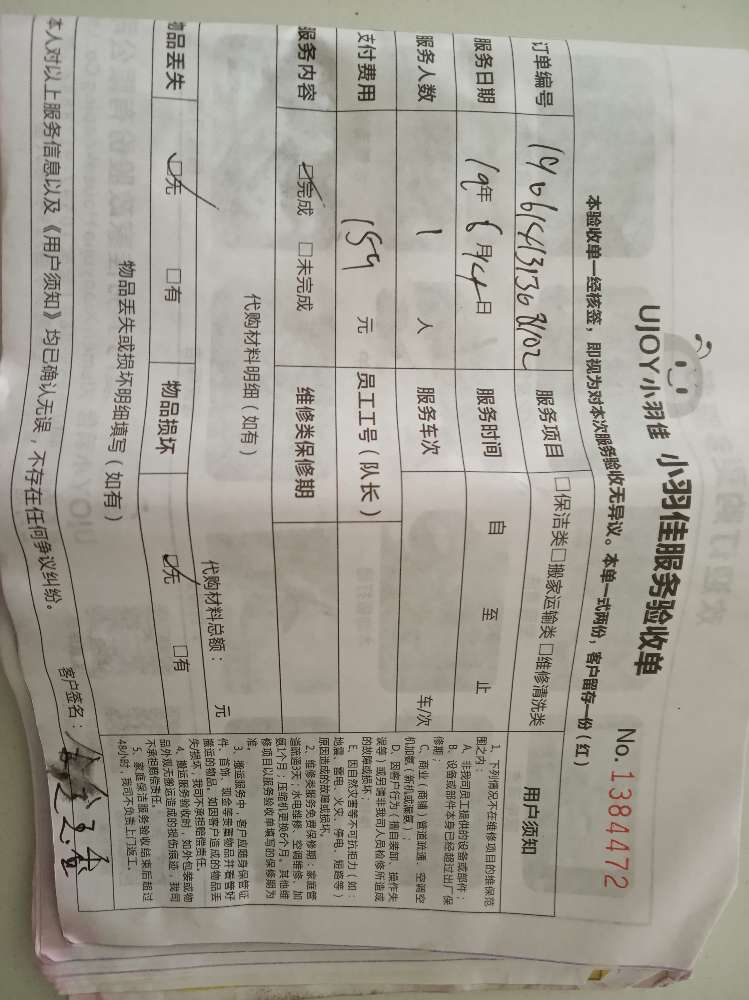 UJOY小羽佳 小羽佳服务验收单
No.1384472
本验收单一经核签，即视为对本次服务验收无异议。本单一式两份，客户留存一份（红）
订单编号 服务项目 □保洁类□搬家运输类□维修清洗类
服务日期 19年6月14日 服务时间 自 至 止
服务人数 1 人 服务车次 车/次
支付费用 159 元 员工工号（队长）
服务内容 ☑完成 □未完成 维修类保修期
代购材料明细（如有）
代购材料总额： 元
物品丢失 ☑无 □有 物品损坏 ☑无 □有
物品丢失或损坏明细填写（如有）
本人对以上服务信息以及《用户须知》均已确认无误，不存在任何争议纠纷。
客户签名：
用户须知
1、下列情况不在维修项目的维保范
围之内：
A、非我司员工提供的设备或部件；
B、设备或部件本身已经超过出厂保
修期；
C、商业（商铺）管道疏通，空调空
机加氨（新机或漏氨）
D、因客户行为（擅自装卸、操作失
误等）或另请非我司人员检修所造成
的故障或损坏；
E、因自然灾害等不可抗拒力（如：
地震、雷电、火灾、停电、短路等）
原因造成的故障或损坏。
2、维修类服务免费保修期：家庭管
道疏通3天；水电维修、空调维修、加
氨1个月；压缩机更换6个月，其他维
修项目以服务验收单填写的保修期为
准。
3、搬运服务中，客户应随身保管证
件、首饰、现金等贵重物品并看管好
搬运的物品，如因客户造成的物品丢
失/损坏，我司不承担赔偿责任。
4、搬运服务验收时，如外包装或物
品外观无搬运造成的损伤痕迹，我司
不承担赔偿责任。
5、家庭保洁服务验收结束后超过
48小时，我司不负责上门返工。